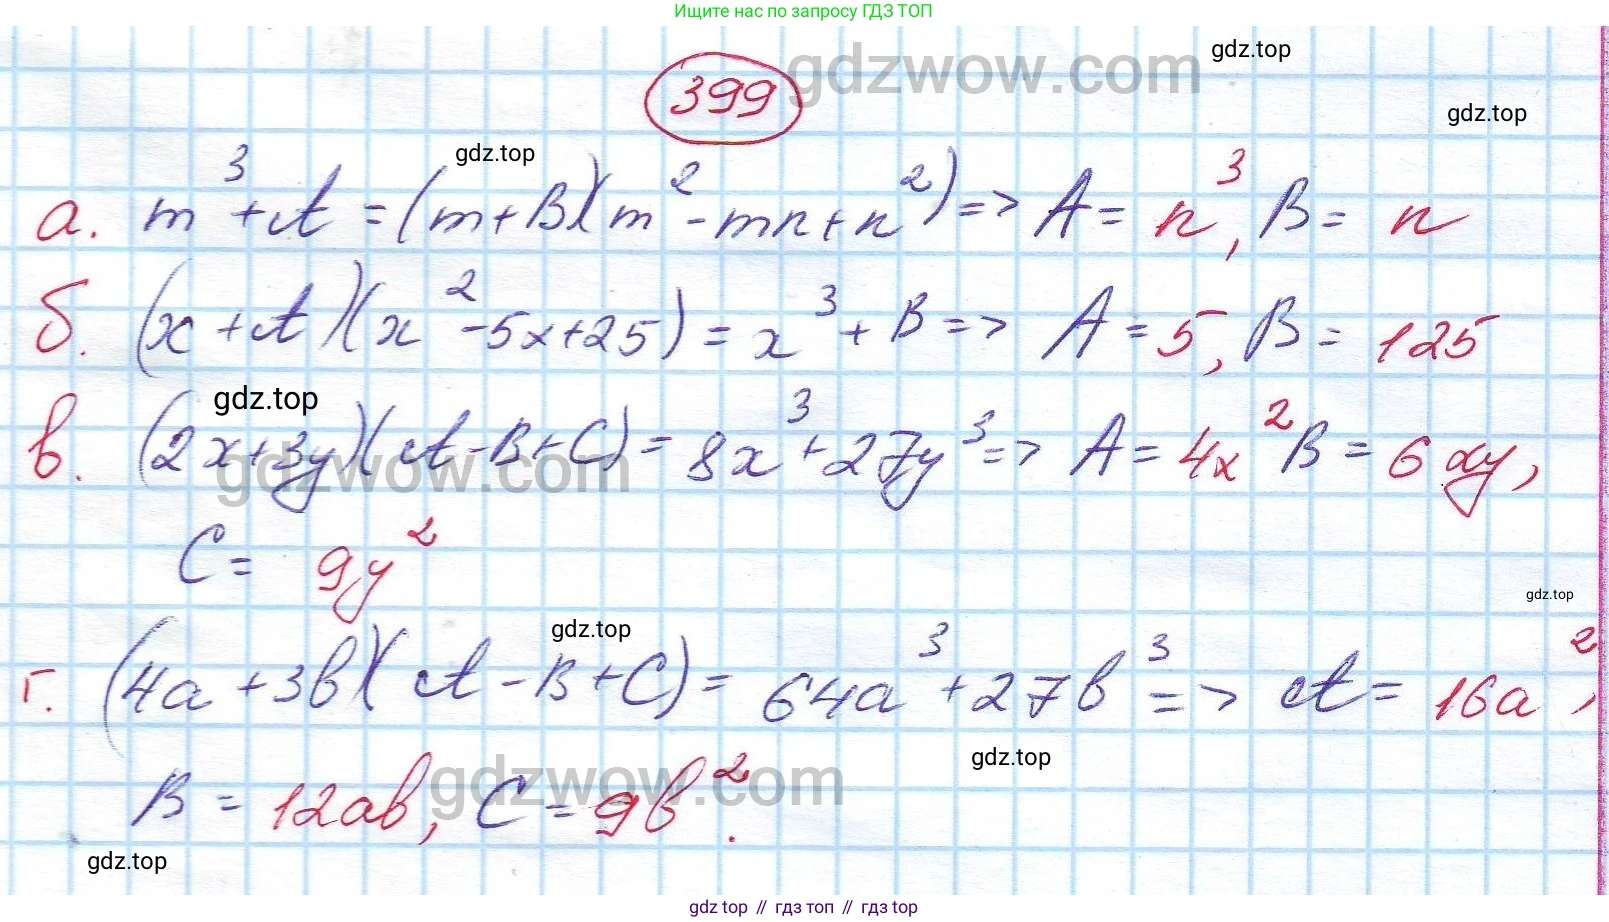 Ищите нас по запросу ГДЗ ТОП
gdzwow.com
gdz.top
399
gdz.top
gdz.top
а. m³ + A = (m + B)(m² - mn + n²) => A = n³, B = n
б. (x + A)(x² - 5x + 25) = x³ + B => A = 5, B = 125
gdz.top
в. (2x + 3y)(A - B + C) = 8x³ + 27y³ => A = 4x² B = 6xy,
gdzwow.com
C = 9y²
gdz.top
gdz.top
г. (4a + 3b)(A - B + C) = 64a³ + 27b³ => A = 16a²,
gdz.top
gdzwow.com
B = 12ab, C = 9b².
gdz.top
gdz top // гдз топ // гдз top